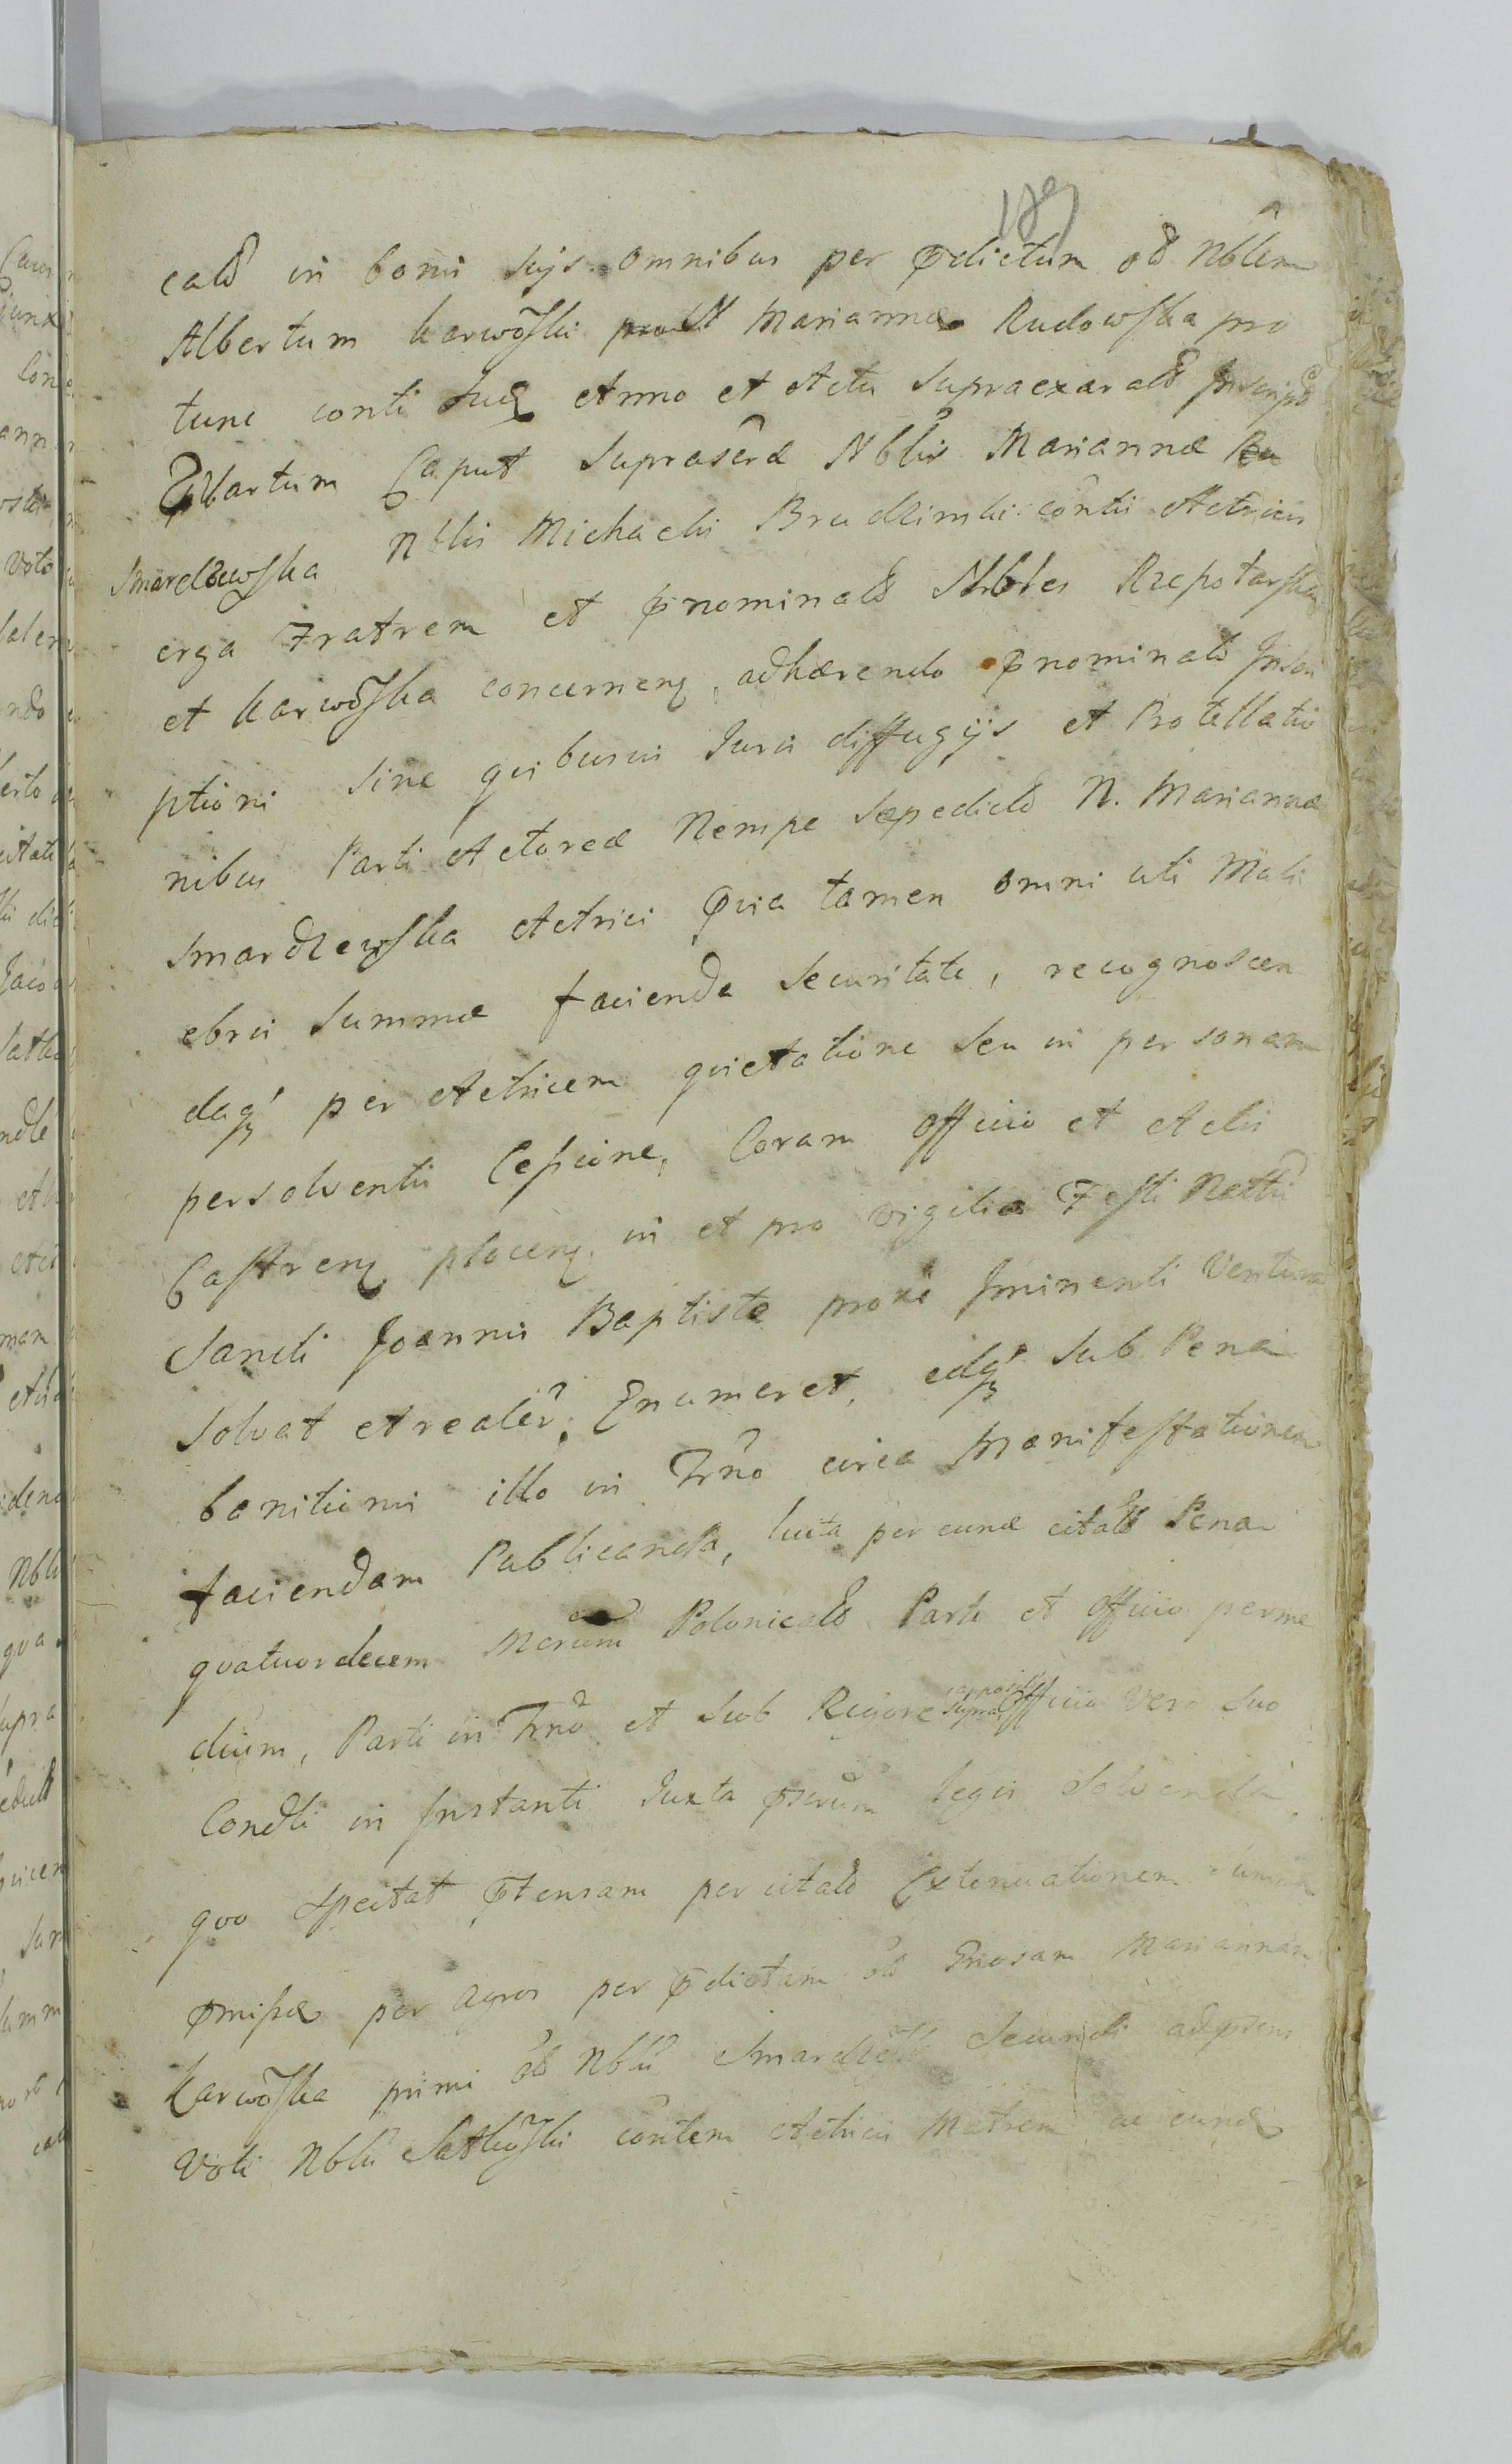 189
calb in bonis suis omnibus per prdictum ob Nblem
Albertum Karwoski Mariannæ Rudowska pro
tunc conti suæ Anno et Actu supraexaratis Inscript
Quartum Caput suprascræ Nblis Mariannæ
Smardzewska Nblis Michaelis Brudzinski contis Actricis
erga Fratrem et prnominatos Nbles Rzepotarska
et Karwoska concernen, adhærendo prnominatæ Inscri
ptioni sine quibusvis Juris diffugijs et Protellatio
nibus Parti Actoreæ Nempe sæpedictæ N. Mariannæ
Smardzewska Actrici pvia tamen omni uti Muli
ebris summæ facienda securitate, recognoscen
daq per Actricem quietatione seu in personam
persolventis Cessione, Coram Officio et Actis
Castren plocen, in et pro vigilia Festi Nattis
Sancti Joannis Baptistæ proxe Iminenti Ventura
solvat et realir Enumeret, idq sub Pena
banitionis illo in Trno circa Manifestationem
faciendam Publicanda, luita per eund citatos Pena
quatuordecem Marcum Polonicalium Parti et Officio perme
dium, Parti in Trno et sub Rigore suppositis supra, Officio Vero suo
Condli in Instanti Juxta prscrum legis solvenda,
quo spectat prtensam per citatos Extenuationem
prmissæ per agros per prdictam ob Gnosam Mariannam
Karwoska primi ob Nblis Smardzewski secundi adprsens
Voti Nblis Sutkoski contem Actricis Matrem ac eund